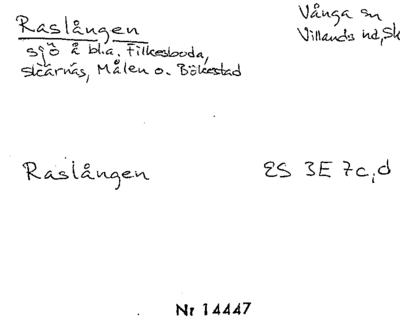 Raslången
sjö å bl.a. Filkesboda,
Skärnäs, Målen o. Bökestad
Vånga sn
Villands hd, Sk
Raslången
ES 3E 7c,d
Nr 14447